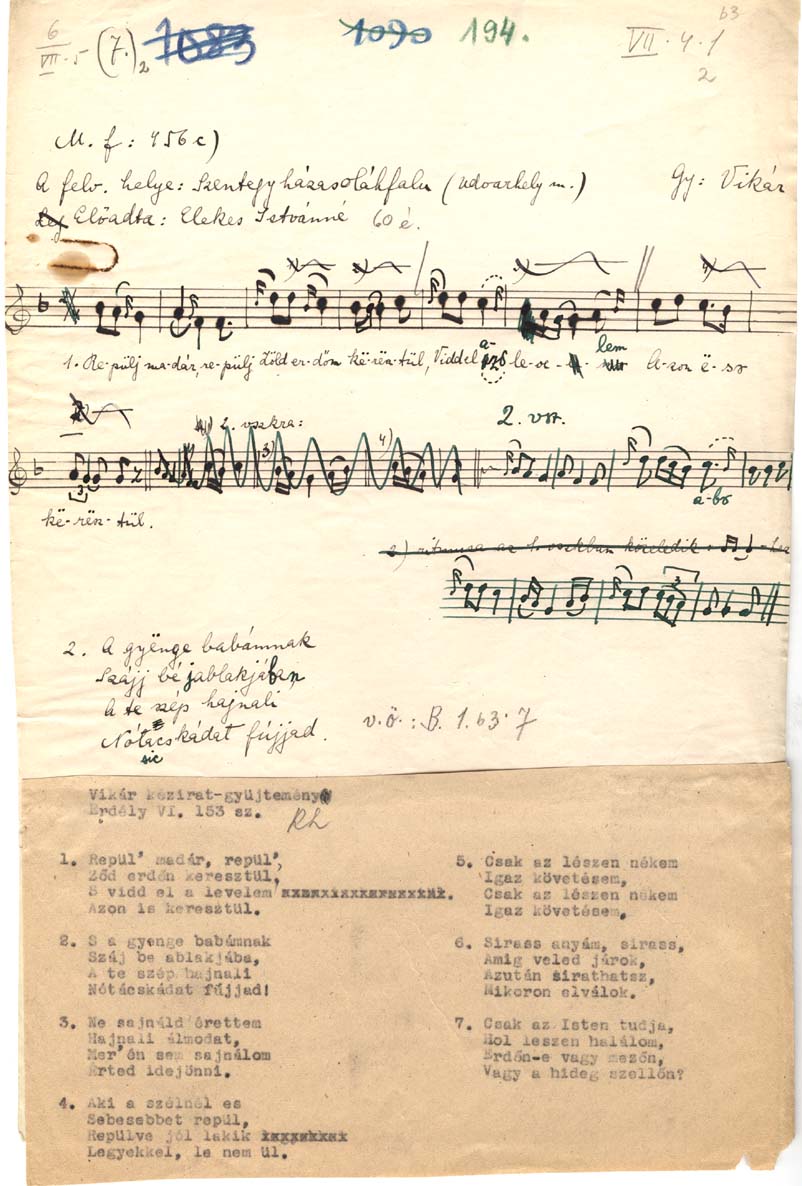 63
6
VII.5 (7.)2 1090 194. VII.4.1
2
M. f: 456c)
A felv. helye: Szentegyházasoláhfalu (Udvarhely m.) Gy: Vikár
Előadta: Elekes Istvánné 60 é.
1. Re-pülj ma-dár, re-pülj Zöld er-dőm kë-rën-tül, Viddel a- le-ve- lem A-zon ë-
kë-rësz-tül.
2. vszkra: 4) 2. vsz.
2) ritmusa az 1. vszkban közeledik
2. A gyënge babámnak
Szájj bé jablakjában
A te szép hajnali
Nótácskádat fújjad.
sic
v.ö.: B. 1.63.7
Vikár kézirat-gyüjtemény
Erdély VI. 153 sz.
1. Repül' madár, repül',
Ződ erdőn keresztül,
S vidd el a levelem
Azon is keresztül.
2. S a gyenge babámnak
Száj be ablakjába,
A te szép hajnali
Nótácskádat fújjad!
3. Ne sajnáld érettem
Hajnali álmodat,
Mer' én sem sajnálom
Érted idejönni.
4. Aki a szélnél es
Sebesebbet repül,
Repülve jól lakik
Legyekkel, le nem ül.
5. Csak az lészen nékem
Igaz követésem,
Csak az lészen nékem
Igaz követésem,
6. Sirass anyám, sirass,
Amig veled járok,
Azután sirathatsz,
Mikoron elválok.
7. Csak az Isten tudja,
Hol leszen halálom,
Erdőn-e vagy mezőn,
Vagy a hideg szellőn?